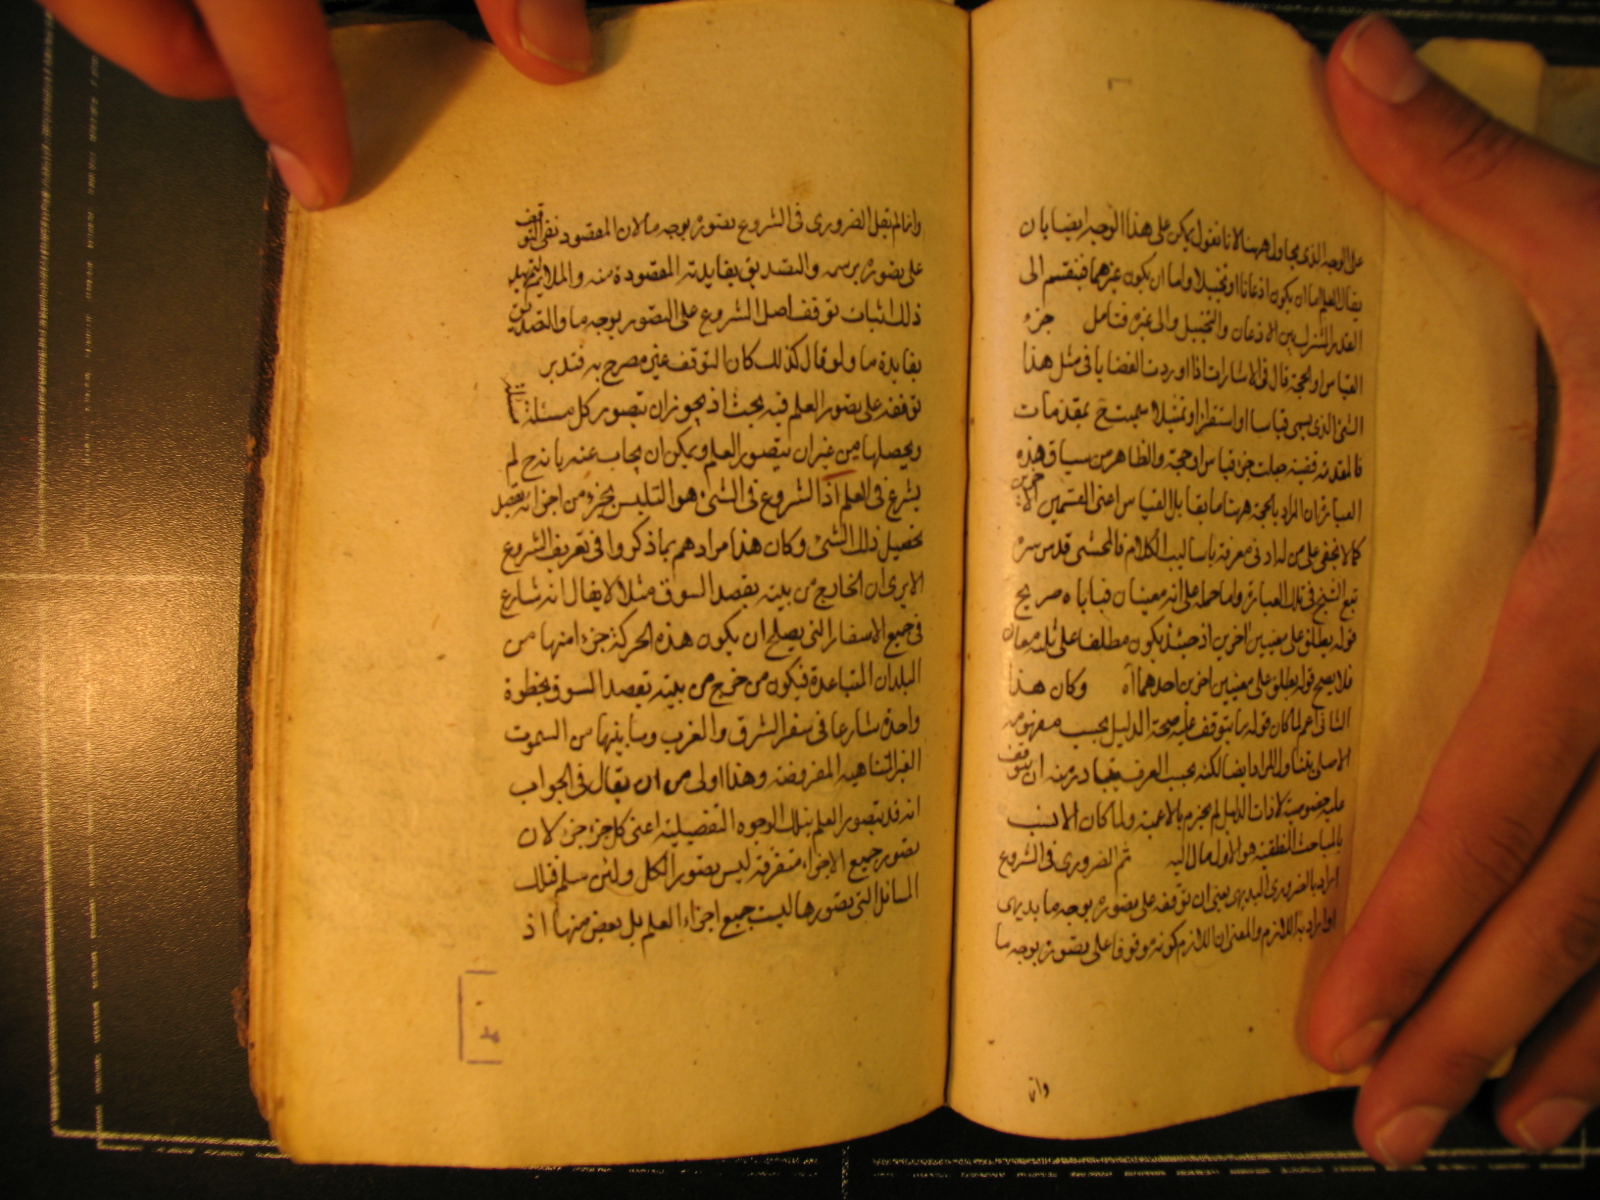 على الوجه الذى يحاول ههنا لانا نقول يمكن على هذا الوجه ايضا بان
يقال العلم اما ان يكون اذعانا او تخييلا واما ان يكون غيرهما فينقسم الى
القدر المشترك بين الاذعان والتخييل والى غيره فتامل جزء
القياس او الحجة قال فى الاشارات اذا اوردت القضايا فى مثل هذا
الشئ الذى يسمى قياسا او استقراء او تمثيلا سميت ح بمقدمات
فالمقدمة قضية جعلت جزء قياس او حجة والظاهر من سياق هذه
العبارة ان المراد بالحجة ههنا ما يقابل القياس اعنى القسمين الاخيرين
كما لا يخفى على من له ادنى معرفة باساليب الكلام فالمحشى قدس سره
تبع الشيخ فى تلك العبارة واما حمله على انه معينان فياباه صريح
قوله يطلق على معنيين اخرين اذ حينئذ يكون مطلقا على ثلثه معان
فلا يصح قوله يطلق على معنيين اخرين احدهما آه وكان هذا
الثانى اعم لما كان قوله ما يتوقف عليه صحة الدليل بحسب مفهومه
الاصلى يتناول المراد ايضا لكنه بحسب العرف يتبادر منه ان يتوقف
عليه خصوصية ذات الدليل لم يجزم بالاعمية ولما كان الانسب
بالمباحث المتعلقة هو الاول مال اليه ثم الضرورى فى الشروع
اراد بالضرورى البديهى يعنى ان توقفه على تصوره بوجه ما بديهى
او اراد به اللازم والمعنى ان اللازم كونه موقوفا على تصوره بوجه ما
وانما
وانما لم يقل الضرورى فى الشروع تصوره بوجه ما لان المقصود نفى التوقف
على تصوره برسمه والتصديق بفايدته المقصودة منه والملايم لتمهيد
ذلك اثبات توقف اصل الشروع على التصور بوجه ما والتصديق
بفايدة ما ولو قال كذلك كان التوقف غير مصرح به فتدبر
توقفه على تصور العلم فيه بحث اذ يجوز ان يتصور كل مسئلة
ويحصلها من غير ان يتصور العلم ويمكن ان يجاب عنه بانه ح لم
يشرع فى العلم اذ الشروع فى الشئ هو التلبس بجزء من اجزائه بقصد
تحصيل ذلك الشئ وكان هذا مرادهم بما ذكروا فى تعريف الشروع
الا يرى ان الخارج من بيته بقصد السوق مثلا لا يقال انه شارع
فى جميع الاسفار التى يصلح ان يكون هذه الحركة جزءا منها من
البلدان المتباعدة فيكون من خرج من بيته بقصد السوق بخطوة
واحدة شارعا فى سفر الشرق والغرب وما بينها من السموت
الغير المتناهيه المفروضة وهذا اولى من ان يقال فى الجواب
انه قد يتصور العلم بتلك الوجوه التفصيلية اعنى كل جزء جزء لان
تصور جميع الاجزاء متفرقة ليس تصور الكل ولئن سلم فتلك
المسائل التى تصورها ليست جميع اجزاء العلم بل بعض منها اذ